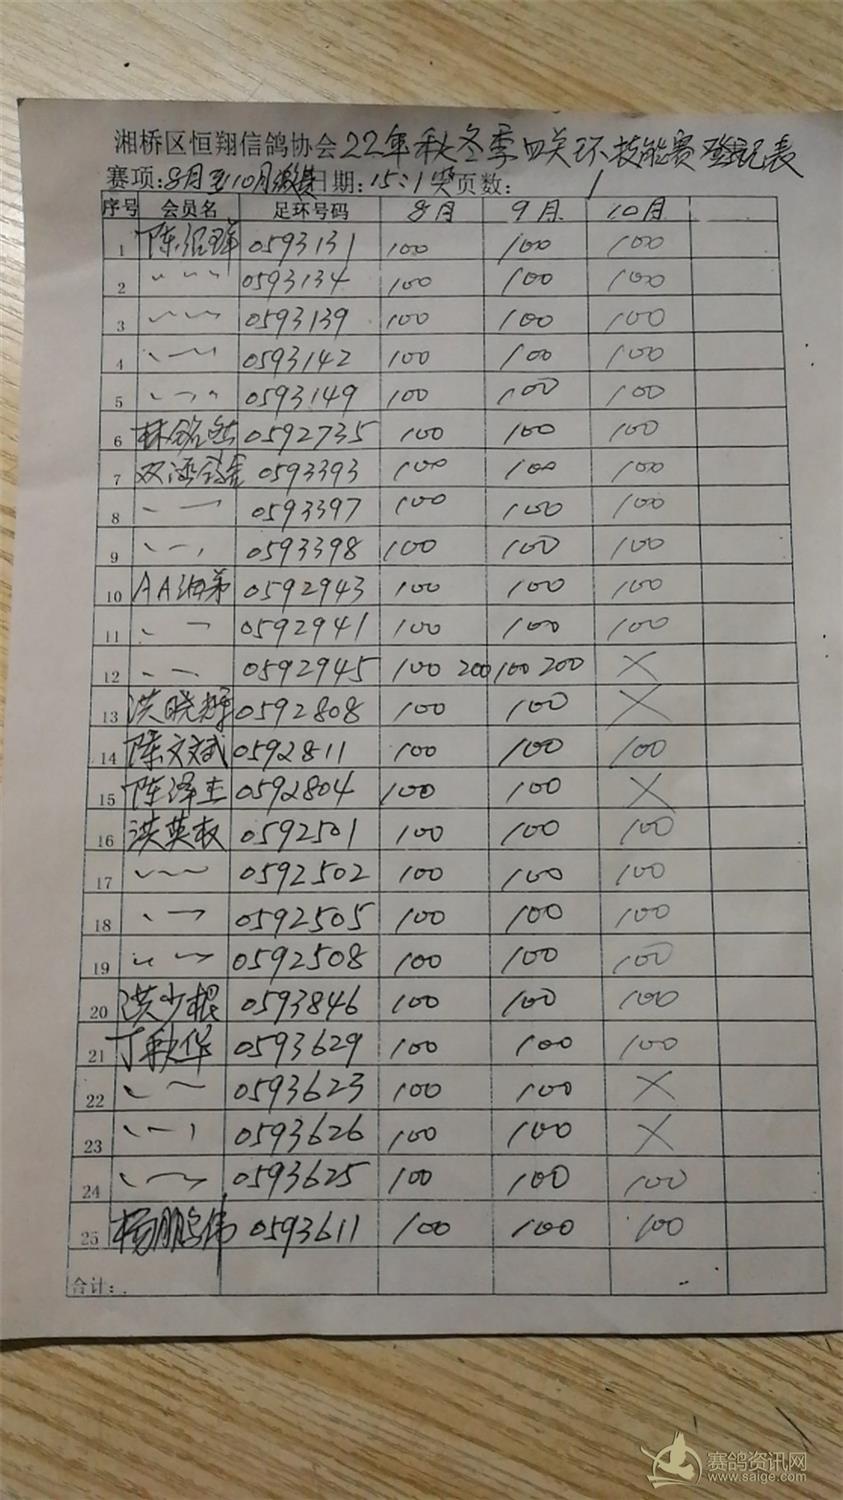 湘桥区恒翔信鸽协会22年秋冬季四关环技能赛登记表
赛项:8月至10月缴费日期:15:1奖页数: 1
序号 会员名 足环号码 8月 9月 10月
1 陈绍群 0593131 100 100 100
2 〃 〃 〃 0593134 100 100 100
3 〃 〃 〃 0593139 100 100 100
4 〃 〃 0593142 100 100 100
5 〃 〃 〃 0593149 100 100 100
6 林铭 0592735 100 100 100
7 双涵鸽舍 0593393 100 100 100
8 〃 〃 0593397 100 100 100
9 〃 〃 〃 0593398 100 100 100
10 AA海弟 0592943 100 100 100
11 〃 〃 0592941 100 100 100
12 〃 〃 0592945 100 200 100 200 ×
13 洪晓辉 0592808 100 100 ×
14 陈文斌 0592811 100 100 100
15 陈泽主 0592804 100 100 ×
16 洪英权 0592501 100 100 100
17 〃 〃 〃 0592502 100 100 100
18 〃 〃 0592505 100 100 100
19 〃 〃 〃 0592508 100 100 100
20 洪少根 0593846 100 100 100
21 丁秋华 0593629 100 100 100
22 〃 〃 0593623 100 100 ×
23 〃 〃 〃 0593626 100 100 ×
24 〃 〃 0593625 100 100 100
25 杨鹏伟 0593611 100 100 100
合计:
赛鸽资讯网
www.saige.com